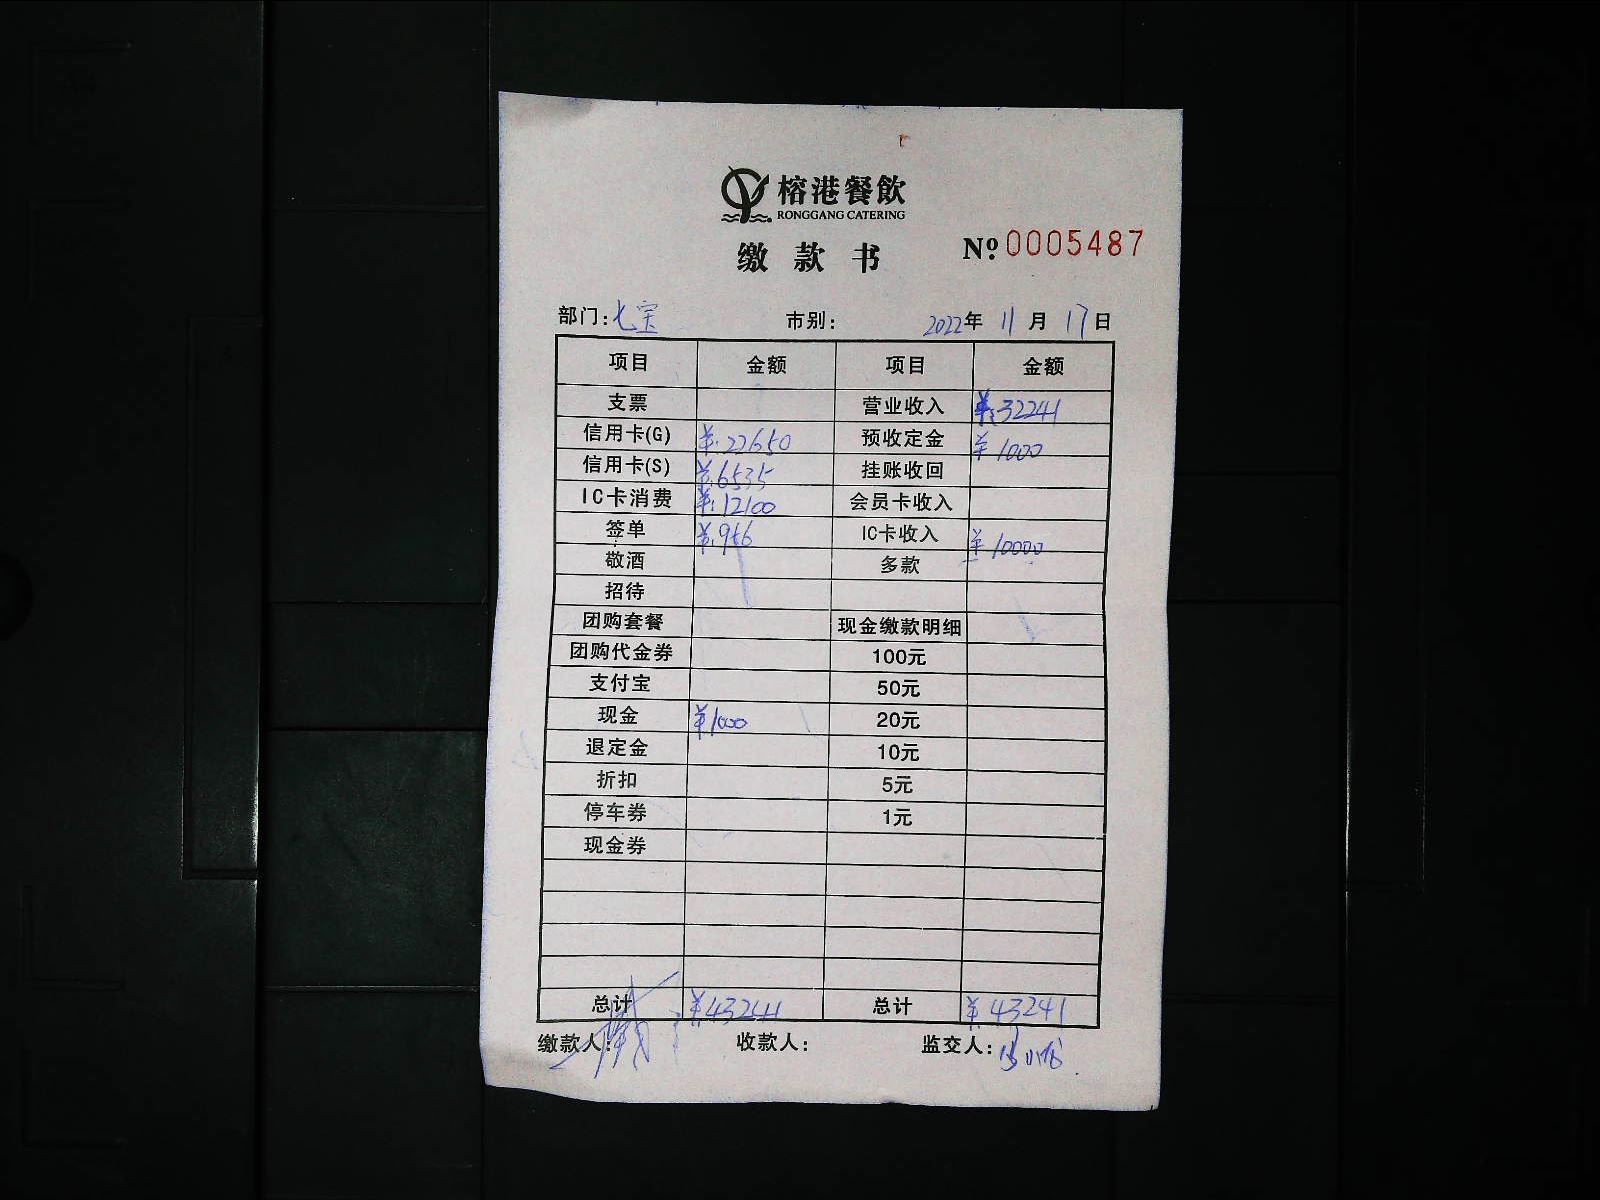 榕港餐飲
RONGGANG CATERING
缴款书 №0005487
部门:七宝 市别: 2022年 11月 17日
项目 金额 项目 金额
支票 营业收入 ¥:32241
信用卡(G) ¥.22650 预收定金 ¥1000
信用卡(S) ¥.6535 挂账收回
IC卡消费 ¥:12100 会员卡收入
签单 ¥.956 IC卡收入 ¥10000
敬酒 多款
招待
团购套餐 现金缴款明细
团购代金券 100元
支付宝 50元
现金 ¥1000 20元
退定金 10元
折扣 5元
停车券 1元
现金券
总计 ¥43241 总计 ¥43241
缴款人: 收款人: 监交人: